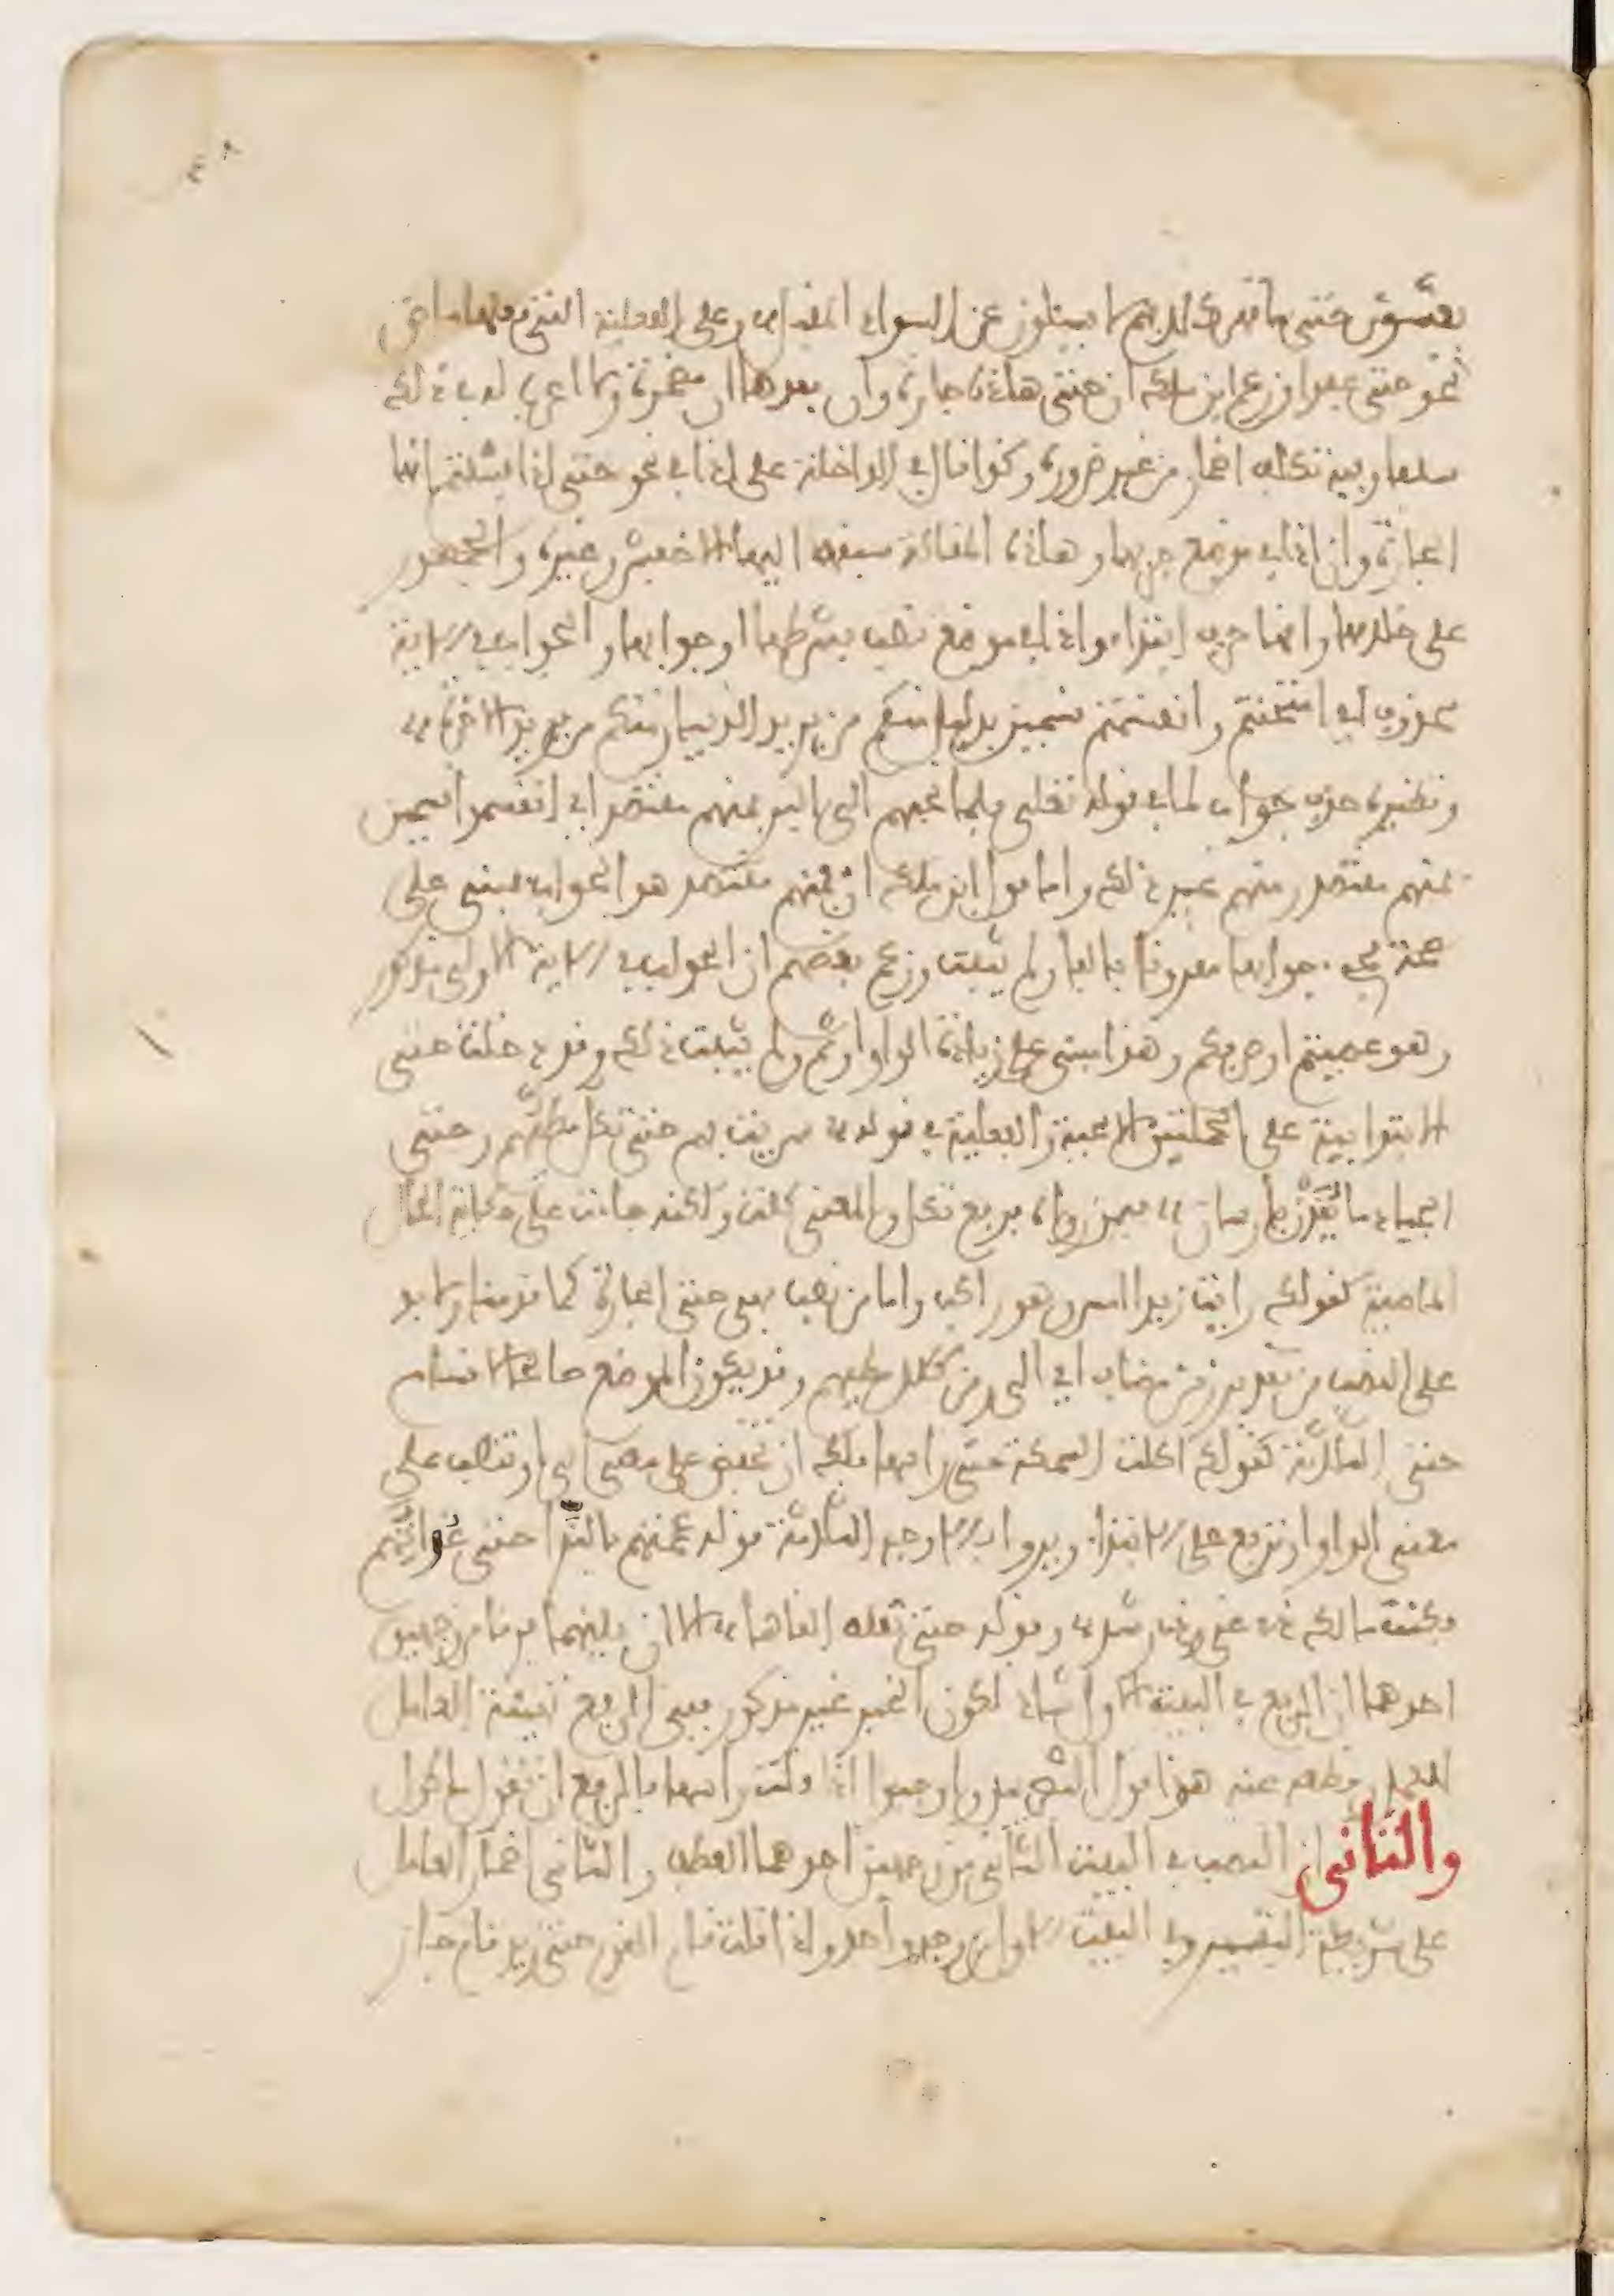 ٤٨
يغشون حتى ما تهر كلابهم لا يسئلون عن السواد المقبل وعلى الفعلية التي فعلها ماض
نحو حتى عفوا وزعم ابن ملك ان حتى هاذه جارة وان بعدها ان مضمرة ولا اعرف له في ذلك
سلفا وفيه تكلف اضمار من غير ضرورة وكذا قال في الداخلة على اذا في نحو حتى اذا فشلتم انها
الجارة وان اذا في موضع جر بها وهاذه المقالة سبقه اليها الاخفش وغيره والجمهور
على خلافها وانها حرف ابتداء واذا في موضع نصب بشرطها او جوابها والجواب في الاية
محذوف اي امتحنتم وانقسمتم قسمين بدليل منكم من يريد الدنيا ومنكم من يريد الاخرة
ونظيره حذف جواب لما في قوله تعلى فلما نجيهم الى البر فمنهم مقتصد اي انقسموا قسمين
فمنهم مقتصد ومنهم غير ذلك واما قول ابن ملك ان فمنهم مقتصد هو الجواب فمبني على
صحة مجيء جوابها مقرونا بالفاء ولم يثبت وزعم بعضهم ان الجواب في الاية الاولى مذكور
وهو عصيتم او صرفكم وهذا مبني على زيادة الواو او ثم ولم يثبت ذلك وقد دخلت حتى
الابتدائية على الجملتين الاسمية والفعلية في قوله سريت بهم حتى تكل مطيهم وحتى
الجياد ما يقدن بارسان فيمن رواه برفع تكل والمعنى كلت ولكنه جاء على حكاية الحال
الماضية كقولك رايت زيدا امس وهو راكب واما من نصب فهي حتى الجارة كما قدمنا ولا بد
على النصب من تقدير زمن مضاف اي الى زمن كلال مطيهم وقد يكون الموضع صالحا لاقسام
حتى الثلاثة كقولك اكلت السمكة حتى راسها فلك ان تخفض على معنى الى وتنصب على
معنى الواو وترفع على الابتداء ويروى بالاوجه الثلاثة قوله عممتهم بالندا حتى غواتهم
فكنت مالك ذي غي وذي رشد وقوله حتى نعله القاها الا ان بينهما فرقا من وجهين
احدهما ان الرفع في البيت الاول شاذ لكون الخبر غير مذكور ففي الرفع تهيئة العامل
للعمل وقطعه عنه هذا قول البصريين واوجبوا اذا قلت راسها بالرفع ان تقول ماكول
والثاني ان النصب في البيت الثاني من وجهين احدهما العطف والثاني اضمار العامل
على شريطة التفسير وفي البيت الاول من وجه واحد واذا قلت قام القوم حتى زيد قام جاز